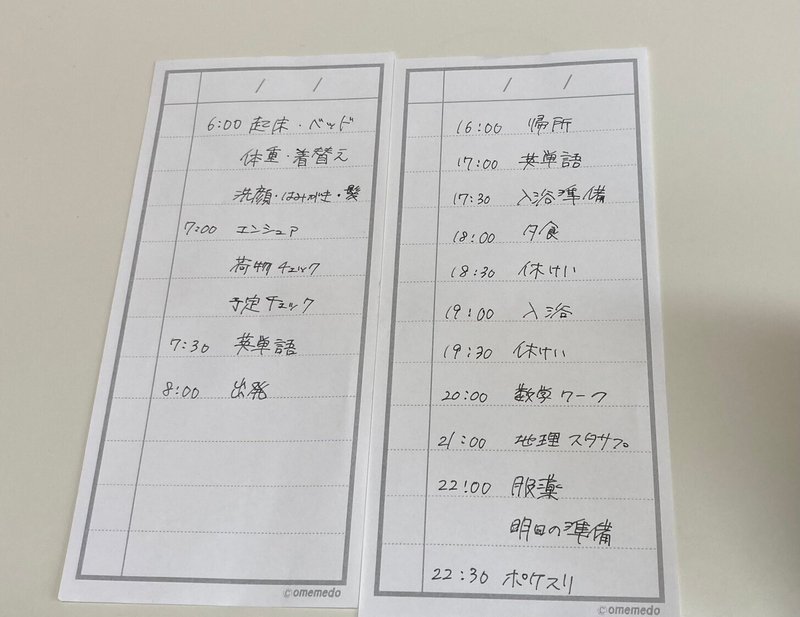 / /
6:00 起床・ベッド
体重・着替え
洗顔・はみがき・髪
7:00 エンシュア
荷物チェック
予定チェック
7:30 英単語
8:00 出発
©omemedo
/ /
16:00 帰所
17:00 英単語
17:30 入浴準備
18:00 夕食
18:30 休けい
19:00 入浴
19:30 休けい
20:00 数学ワーク
21:00 地理スタサプ。
22:00 服薬
明日の準備
22:30 ポケスリ
©omemedo